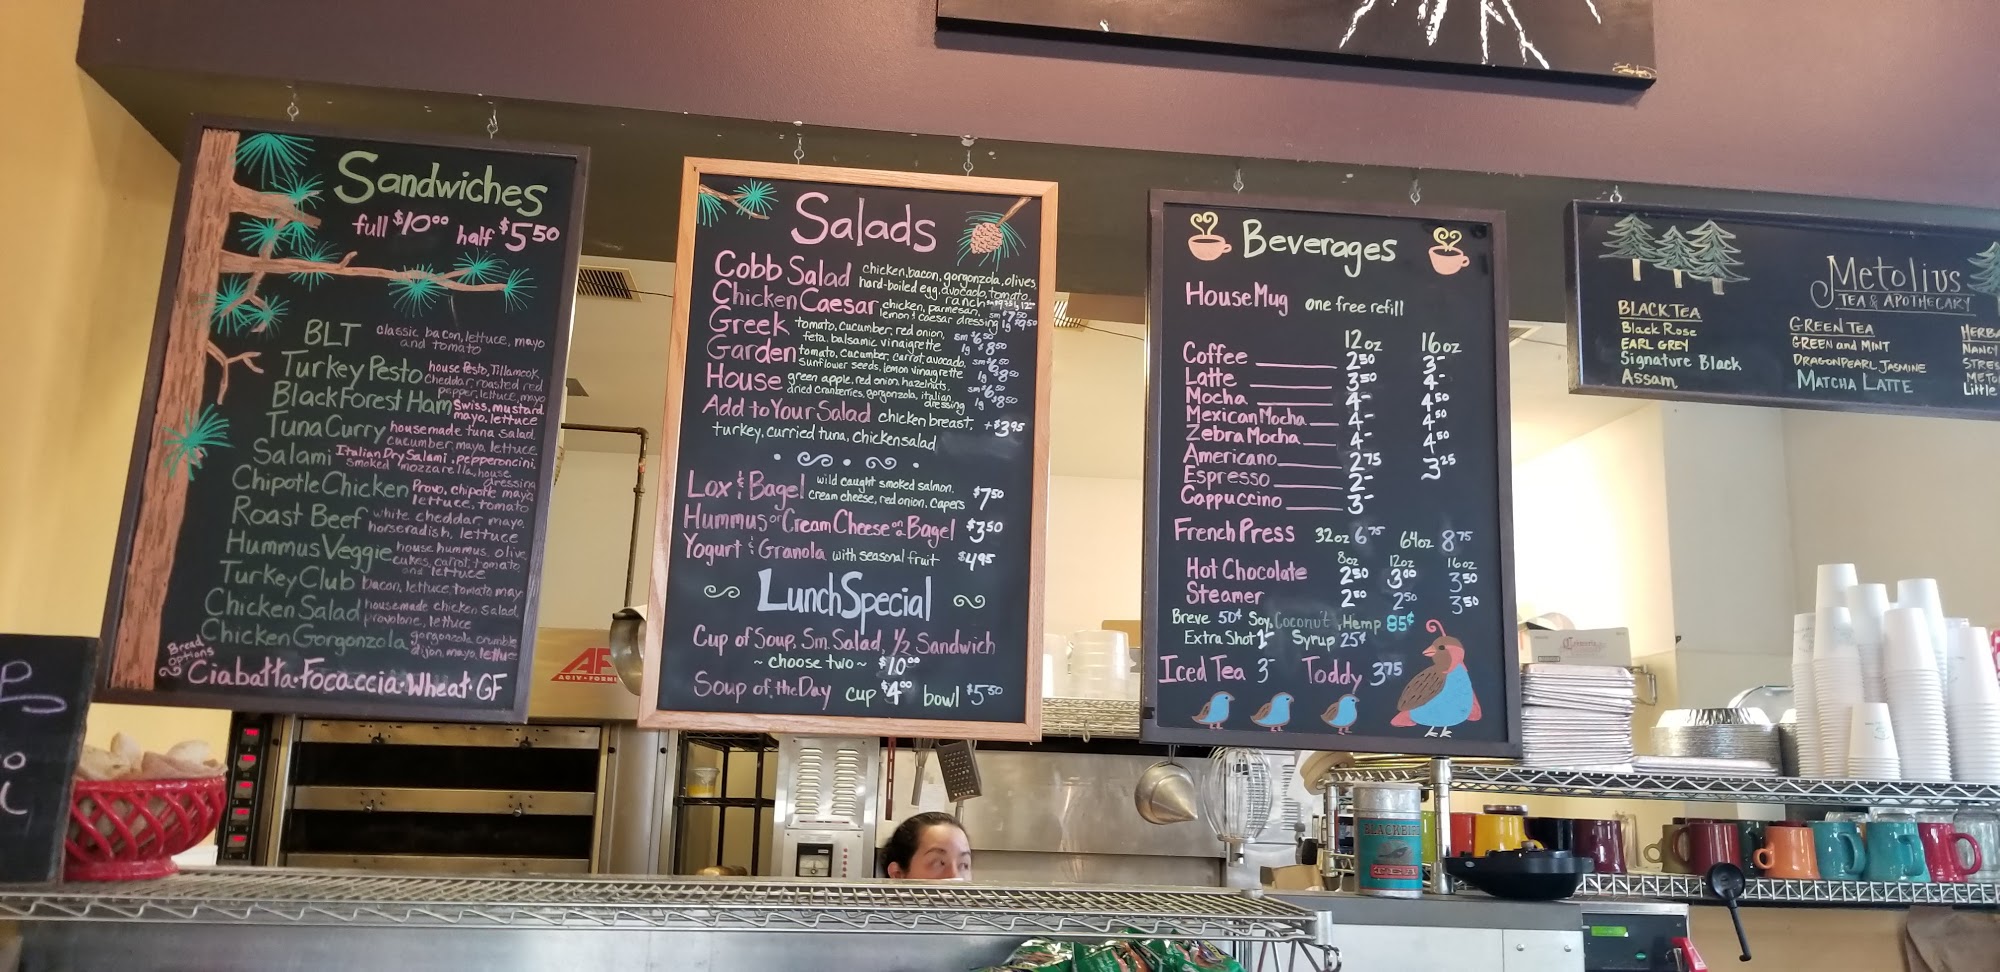 Sandwiches
full $10.00 half $5.50
BLT classic bacon, lettuce, mayo and tomato
Turkey Pesto house Pesto, Tillamook cheddar, roasted red pepper, lettuce, mayo
Black Forest Ham Swiss, mustard mayo, lettuce
Tuna Curry housemade tuna salad cucumber, mayo, lettuce
Salami Italian Dry Salami, pepperoncini, smoked mozzarella, house dressing
Chipotle Chicken Provo, chipotle mayo lettuce, tomato
Roast Beef white cheddar, mayo, horseradish, lettuce
Hummus Veggie house hummus, olive cukes, carrot, tomato and lettuce
Turkey Club bacon, lettuce, tomato mayo
Chicken Salad housemade chicken salad, provolone, lettuce
Chicken Gorgonzola gorgonzola crumble dijon, mayo, lettuce
Bread Options
Ciabatta · Focaccia · Wheat · GF
Salads
Cobb Salad chicken, bacon, gorgonzola, olives, hard-boiled egg, avocado, tomato, ranch
Chicken Caesar chicken, parmesan, lemon & caesar dressing sm $7.50 lg $9.50
Greek tomato, cucumber, red onion, feta, balsamic vinaigrette sm $6.50 lg $8.50
Garden tomato, cucumber, carrot, avocado, sunflower seeds, lemon vinaigrette sm $6.50 lg $8.50
House green apple, red onion, hazelnuts, dried cranberries, gorgonzola, italian dressing sm $6.50 lg $8.50
Add to Your Salad chicken breast, +$3.95
turkey, curried tuna, chicken salad
Lox & Bagel wild caught smoked salmon, cream cheese, red onion, capers $7.50
Hummus or Cream Cheese on a Bagel $3.50
Yogurt & Granola with seasonal fruit $4.95
Lunch Special
Cup of Soup, Sm. Salad, 1/2 Sandwich
~ choose two ~ $10.00
Soup of the Day cup $4.00 bowl $5.50
Beverages
House Mug one free refill
12oz 16oz
Coffee 2.50 3-
Latte 3.50 4-
Mocha 4- 4.50
Mexican Mocha 4- 4.50
Zebra Mocha 4- 4.50
Americano 2.75 3.25
Espresso 2-
Cappuccino 3-
French Press 32oz 6.75 64oz 8.75
8oz 12oz 16oz
Hot Chocolate 2.50 3.00 3.50
Steamer 2.50 3.50
Breve 50¢ Soy, Coconut, Hemp 85¢
Extra Shot 1- Syrup 25¢
Iced Tea 3- Toddy 3.75
Metolius
TEA & APOTHECARY
BLACK TEA
Black Rose
EARL GREY
Signature Black
Assam
GREEN TEA
GREEN and MINT
DRAGONPEARL JASMINE
MATCHA LATTE
HERBA
NANCY
STRES
METO
Little
TEA